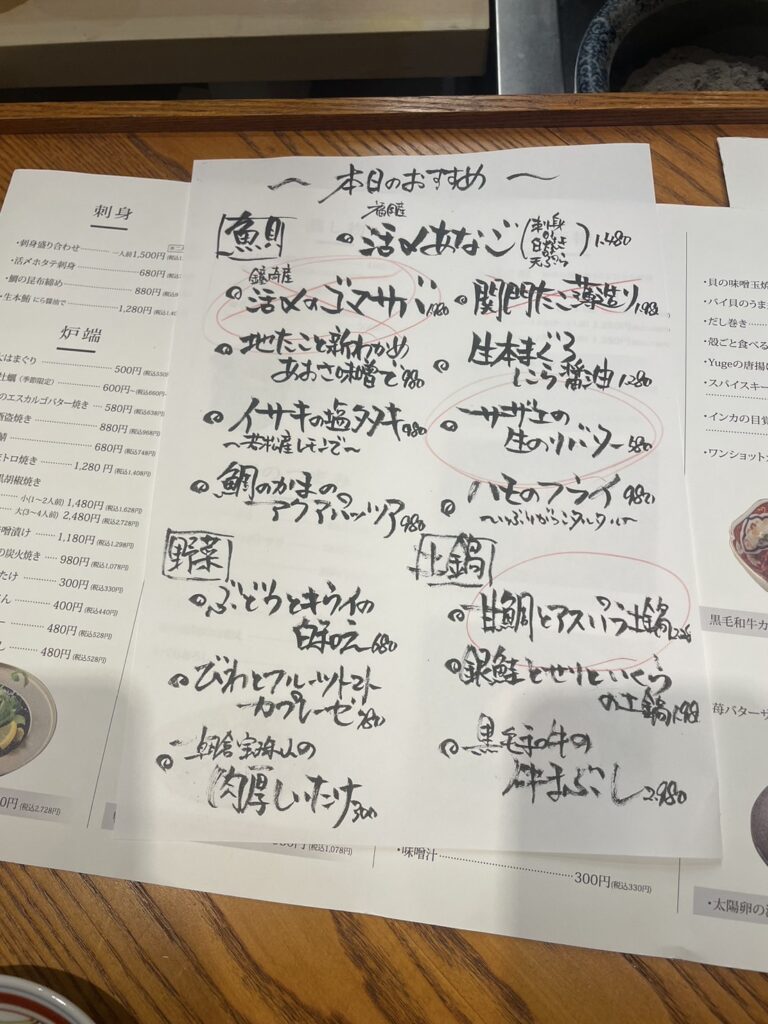 〜 本日のおすすめ 〜
魚
福岡産
活〆あなご(刺身 or 白焼き or 天ぷら) 1,480
活〆のゴマサバ
関門たこ薄造り
地たこと新わかめ
あおさ味噌で 980
生本まぐろ
にら醤油 1280
イサキの塩タタキ 980
〜若松産レモンで〜
サザエの
生のりバター 580
鯛のかまの
アクアパッツァ 980
ハモのフライ 980
〜いぶりがっこタルタル〜
野菜
ぶどうとキウイの
白和え 680
びわとフルーツトマト
カプレーゼ 780
朝倉宝珠山の
肉厚しいたけ 300
土鍋
甘鯛とアスパラ土鍋
銀鮭とせりといくら
の土鍋
黒毛和牛の
牛まぶし 2,980
刺身
・刺身盛り合わせ 一人前1,500円
・活〆ホタテ刺身 680円
・鯛の昆布締め 880円
・生本鮪 にら醤油で 1,280円
炉端
はまぐり 500円
牡蠣(季節限定) 600円~
のエスカルゴバター焼き 580円(税込638円)
酒盗焼き 880円(税込968円)
680円(税込748円)
トロ焼き 1,280円(税込1,408円)
黒胡椒焼き
小(1〜2人前) 1,480円(税込1,628円)
大(3〜4人前) 2,480円(税込2,728円)
味噌漬け 1,180円(税込1,298円)
の炭火焼き 980円(税込1,078円)
たけ 300円(税込330円)
400円(税込440円)
480円(税込528円)
480円(税込528円)
0円(税込2,728円)
(税込1,078円)
・味噌汁 300円(税込330円)
・貝の味噌玉焼
・バイ貝のうま
・だし巻き
・殻ごと食べる
・Yugeの唐揚
・スパイスキー
・インカの目覚
・ワンショット
黒毛和牛カ
苺バターサ
・太陽卵の